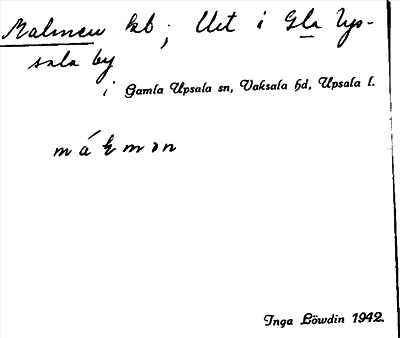 Malmen kb; Urt i Gla Up-
sala by
i Gamla Upsala sn, Vaksala hd, Upsala l.
Inga Löwdin 1942.